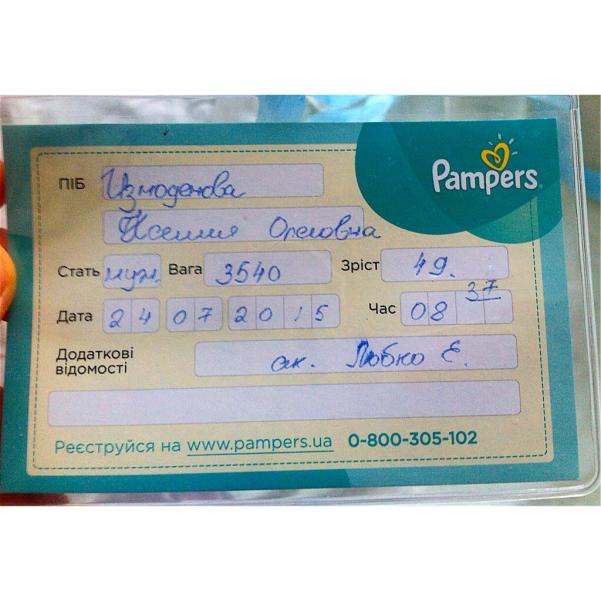 Pampers
ПІБ Измоденова
Ксения Олеговна
Стать муж. Вага 3540 Зріст 49.
Дата 24 07 2015 Час 08 37
Додаткові відомості ак. Любко Е.
Реєструйся на www.pampers.ua 0-800-305-102